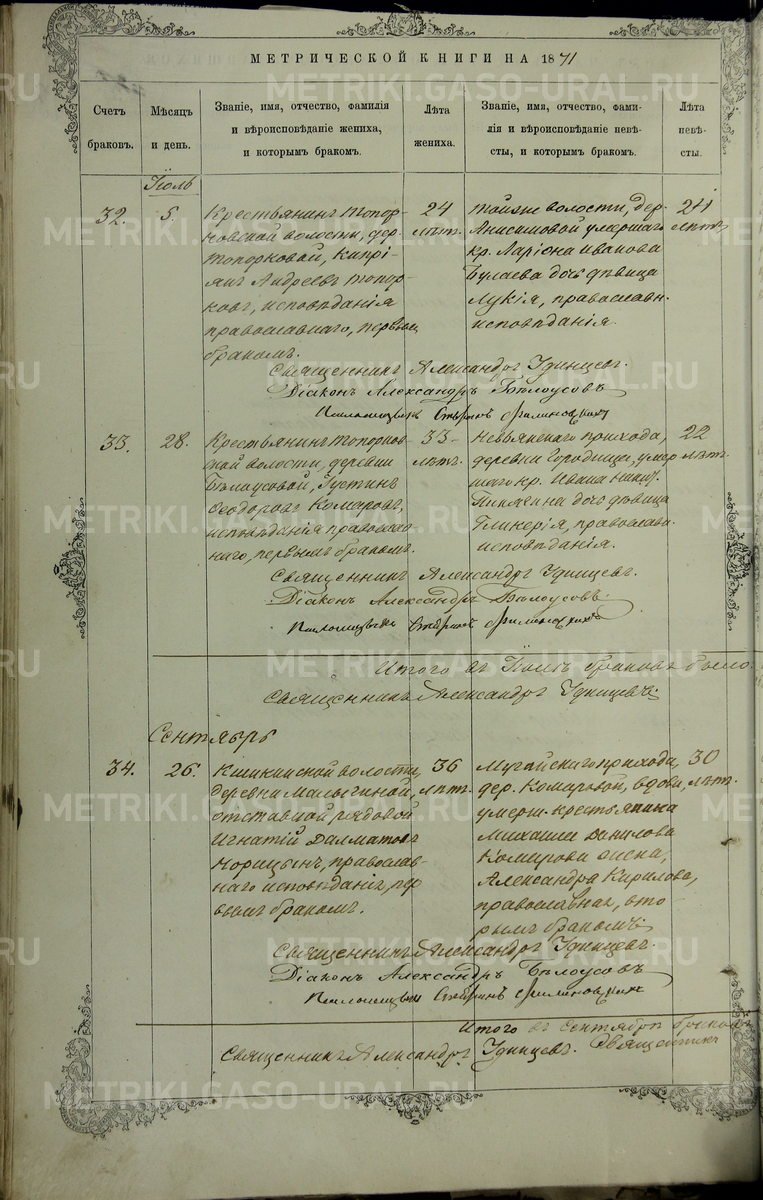 МЕТРИЧЕСКОЙ КНИГИ НА 1871
Счетъ браковъ.
Мѣсяцъ и день.
Званіе, имя, отчество, фамилія
и вѣроисповѣданіе жениха,
и которымъ бракомъ.
Лѣта жениха.
Званіе, имя, отчество, фами-
лія и вѣроисповѣданіе невѣ-
сты, и которымъ бракомъ.
Лѣта невѣ-
сты.
Іюль
32.
5.
Крестьянинъ Топор-
ковской волости, дер.
Топорковой, Кипрі-
янъ Андреевъ Топор-
ковъ, исповѣданія
православнаго, первымъ
бракомъ.
24
лѣтъ.
тойже волости, дер.
Анисимовой умершаго
кр. Ларіона Иванова
Булаева дочь дѣвица
Лукія, православн.
исповѣданія.
21
лѣтъ,
Священникъ Александръ Удинцевъ.
Діаконъ Александръ Бѣлоусовъ
Псаломщикъ
33.
28.
Крестьянинъ Топорков-
ской волости, деревни
Бѣлоусовой, Іустинъ
Ѳеодоровъ Комаровъ,
исповѣданія православ-
наго, первымъ бракомъ.
33
лѣтъ.
Невьянскаго прихода,
деревни Городища, умер
шаго кр. Ивана
дочь дѣвица
Гликерія, православн.
исповѣданія.
22
лѣт.
Священникъ Александръ Удинцевъ.
Діаконъ Александръ Бѣлоусовъ
Псаломщикъ
Итого въ Іюлѣ браковъ было
Священникъ Александръ Удинцевъ
Сентябрь
34.
26.
волости,
деревни Малыгиной,
отставной рядовой
Игнатій Далматовъ
православ-
наго исповѣданія, пер
вымъ бракомъ.
36
лѣт.
Мугайскаго прихода,
дер. Комаровой, вдова,
умерш. крестьянина
Михаила Данилова
Комарова жена,
Александра Кирилова,
православная, вто
рымъ бракомъ.
30
лѣт.
Священникъ Александръ Удинцевъ.
Діаконъ Александръ Бѣлоусовъ
Псаломщикъ
Итого въ Сентябрѣ браковъ
Священникъ Александръ Удинцевъ. Священникъ
METRIKI.GASO-URAL.RU